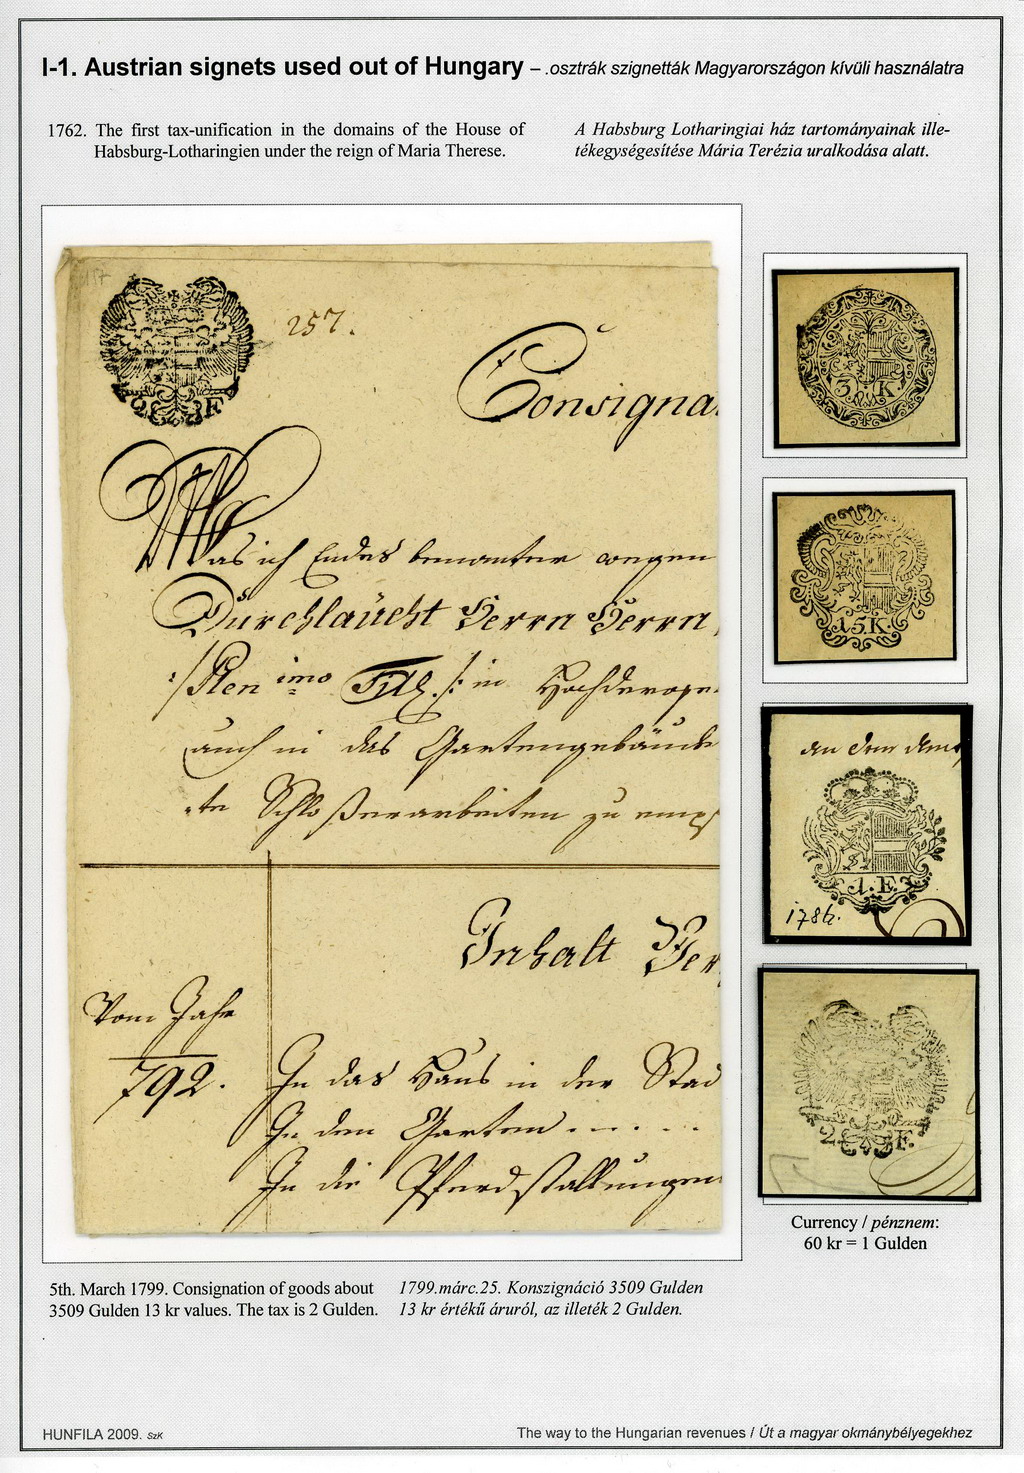 I-1. Austrian signets used out of Hungary – .osztrák szignetták Magyarországon kívüli használatra
1762. The first tax-unification in the domains of the House of
Habsburg-Lotharingien under the reign of Maria Therese.
A Habsburg Lotharingiai ház tartományainak ille-
tékegységesítése Mária Terézia uralkodása alatt.
157
257.
2 F
Consigna
Was ich Endes benanter wegen
Durchlaücht Herrn Herrn
:/Plen imo Titl. /: in
auch in das Gartengebäude
te Schloßerarbeiten zu
Inhalt Der
Vom Jahr
792.
In das Haus in der Stad
In den Garten - - - -
In die Pferdstallungen
3 K
15 K
an dem
1. F.
178
2 F.
Currency / pénznem:
60 kr = 1 Gulden
5th. March 1799. Consignation of goods about
3509 Gulden 13 kr values. The tax is 2 Gulden.
1799.márc.25. Konszignáció 3509 Gulden
13 kr értékű áruról, az illeték 2 Gulden.
HUNFILA 2009. SzK
The way to the Hungarian revenues / Út a magyar okmánybélyegekhez